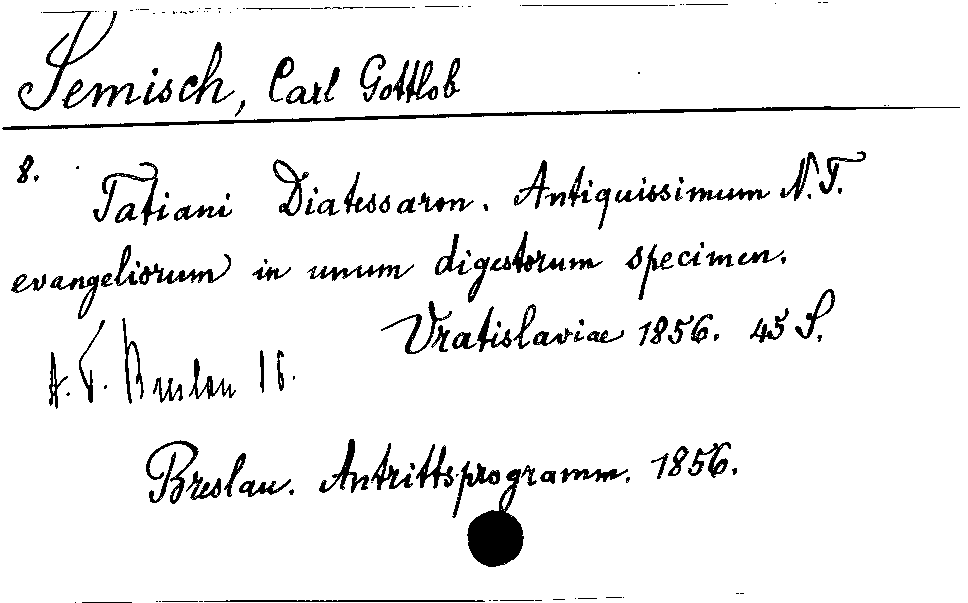 Semisch, Carl Gottlob
8.
Tatiani Diatessaron. Antiquissimum N.T.
evangeliorum in unum digestorum specimen.
Vratislaviae 1856. 45 S.
Breslau 16.
Breslau. Antrittsprogramm. 1856.